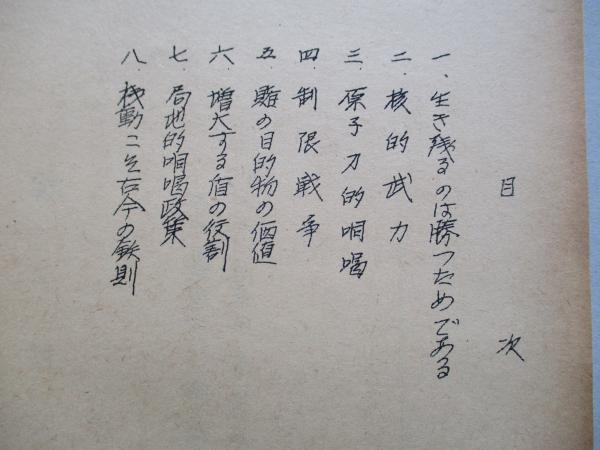 目次
一、生き残るのは勝つためである
二、核的武力
三、原子力的恫喝
四、制限戦争
五、賭の目的物の価値
六、増大する盾の役割
七、局地的恫喝政策
八、機動こそ古今の鉄則